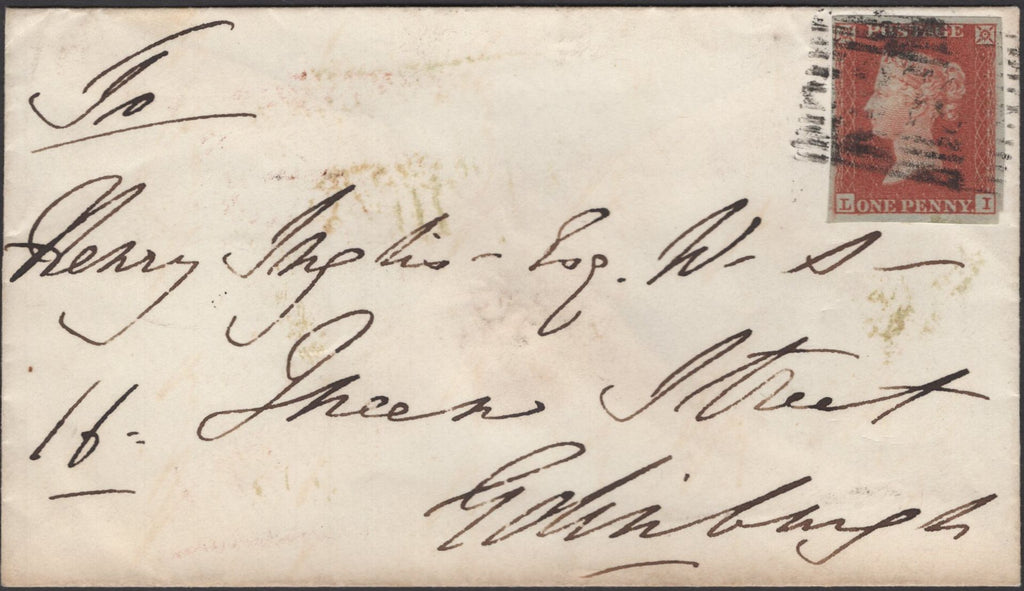 POSTAGE
L ONE PENNY. I
To
Henry Inglis - Esq. W - S -
16 - Queen Street
Edinburgh